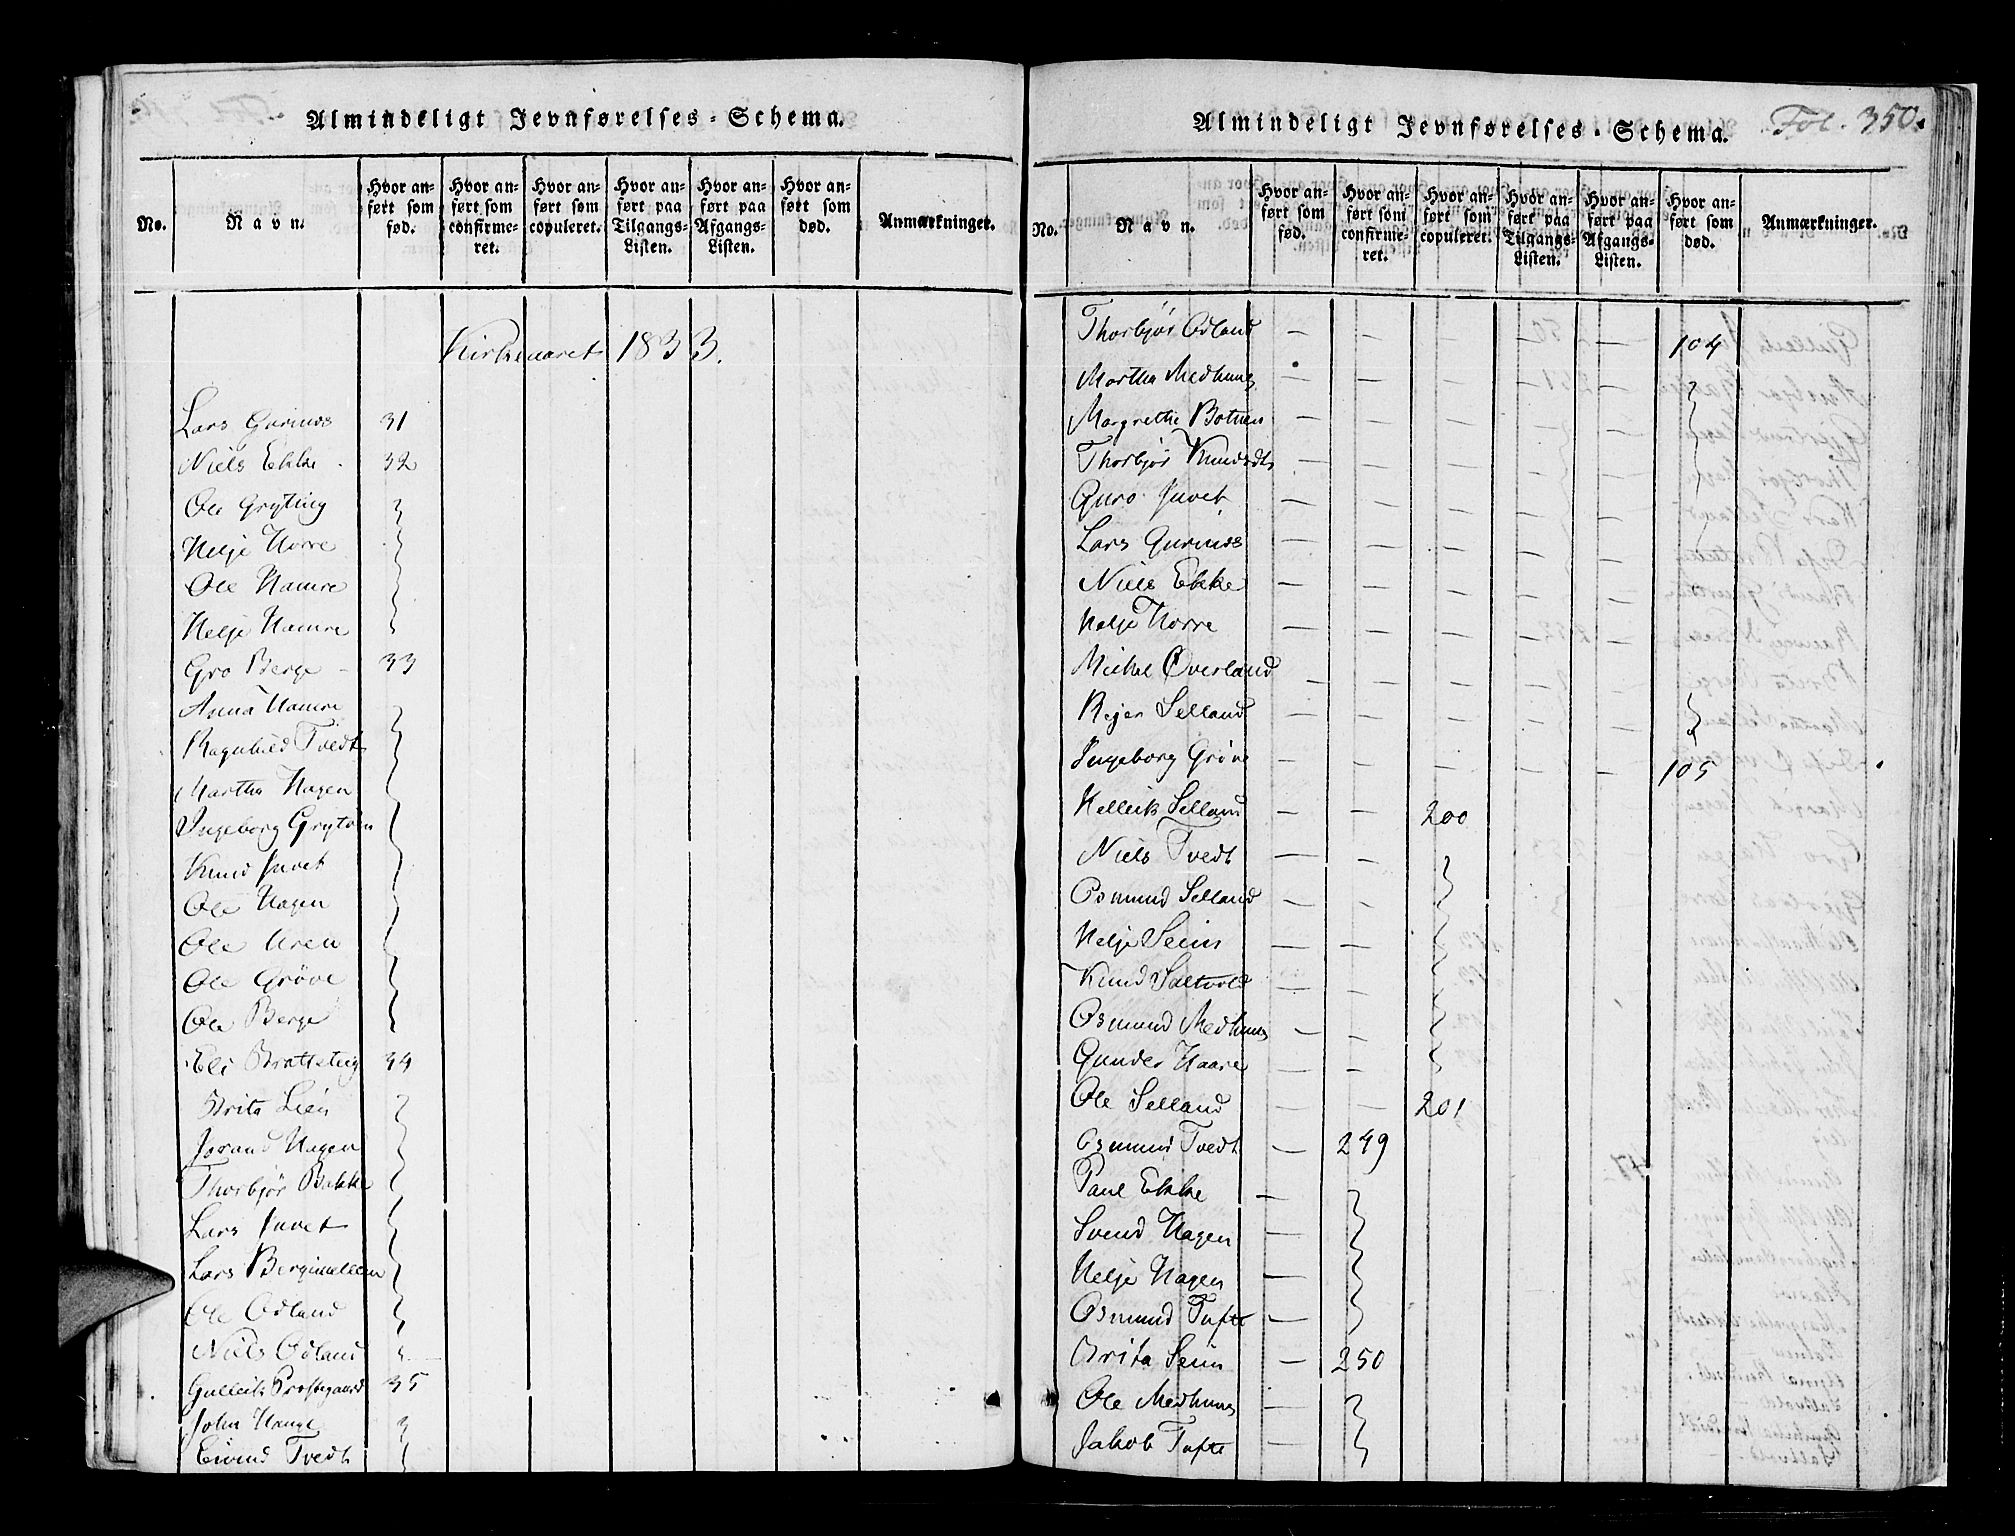 Almindeligt Jevnførelses-Schema.
No. Navn. Hvor anført som fød. Hvor anført som confirmeret. Hvor anført som copuleret. Hvor anført paa Tilgangs-Listen. Hvor anført paa Afgangs-Listen. Hvor anført som død. Anmærkninger.
Kirkeaaret 1833.
Lars Gurines 31
Niels Ekke 32
Ole Gryting
Helje Horre
Ole Hamre
Helje Hamre
Gro Berge 33
Anna Hamre
Ragnhild Tvedt
Martha Hagen
Ingeborg
Knud Juvet
Ole Hagen
Ole Uren
Ole Grøve
Ole Berge
Eli Bratteteig 34
Brita Lien
Jorand Hagen
Thorbjør Bakke
Lars Juvet
Lars
Ole Odland
Niels Odland
Gulleik Prestegaard 35
John Hauge
Eivind Tvedt
Almindeligt Jevnførelses-Schema. Fol. 350.
No. Navn. Hvor anført som fød. Hvor anført som confirmeret. Hvor anført som copuleret. Hvor anført paa Tilgangs-Listen. Hvor anført paa Afgangs-Listen. Hvor anført som død. Anmærkninger.
Thorbjør Odland — — — — — 104
Martha Medhuus
Margrethe Botnen — — — — —
Thorbjør Knudsdtr — — — — —
Guro Juvet — — — — —
Lars Gurines — — — — —
Niels Ekke — — — — —
Helje Horre — — — — —
Michel Overland — — — — —
Rejer Selland — — — — —
Ingeborg Grøve — — — — — 105
Helleik Selland — — 200
Niels Tvedt — —
Osmund Selland — —
Helje Seim — —
Knud Saltvold — —
Osmund Medhuus — —
Gunder Haare — —
Ole Selland — — 201
Osmund Tvedt — 249
Paul Ekke —
Svend Hagen —
Helje Hagen —
Osmund Tufte —
Brita Seim — 250
Ole Medhuus —
Jakob Tufte —